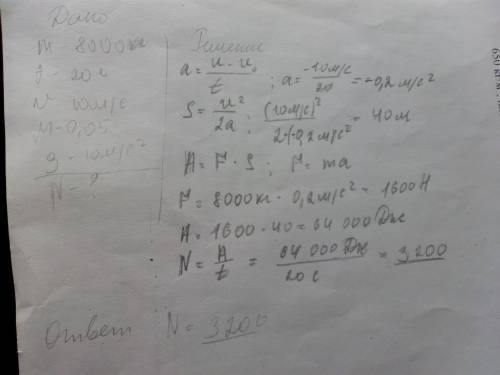 Дано
m - 8000кг
t - 20с
v 10м/с
μ - 0,05
g - 10м/с²
N - ?
Решение
a = v - v₀ / t ; a = -10м/с / 20 = -0,2 м/с²
S = v² / 2a ; (10м/с)² / 2·(-0,2м/с² = 40м
A = F · S ; F = ma
F = 8000кг · 0,2м/с² - 1600Н
A = 1600 · 40 = 64 000 Дж
N = A / t = 64 000 Дж / 20 с = 3200
Ответ N = 3200